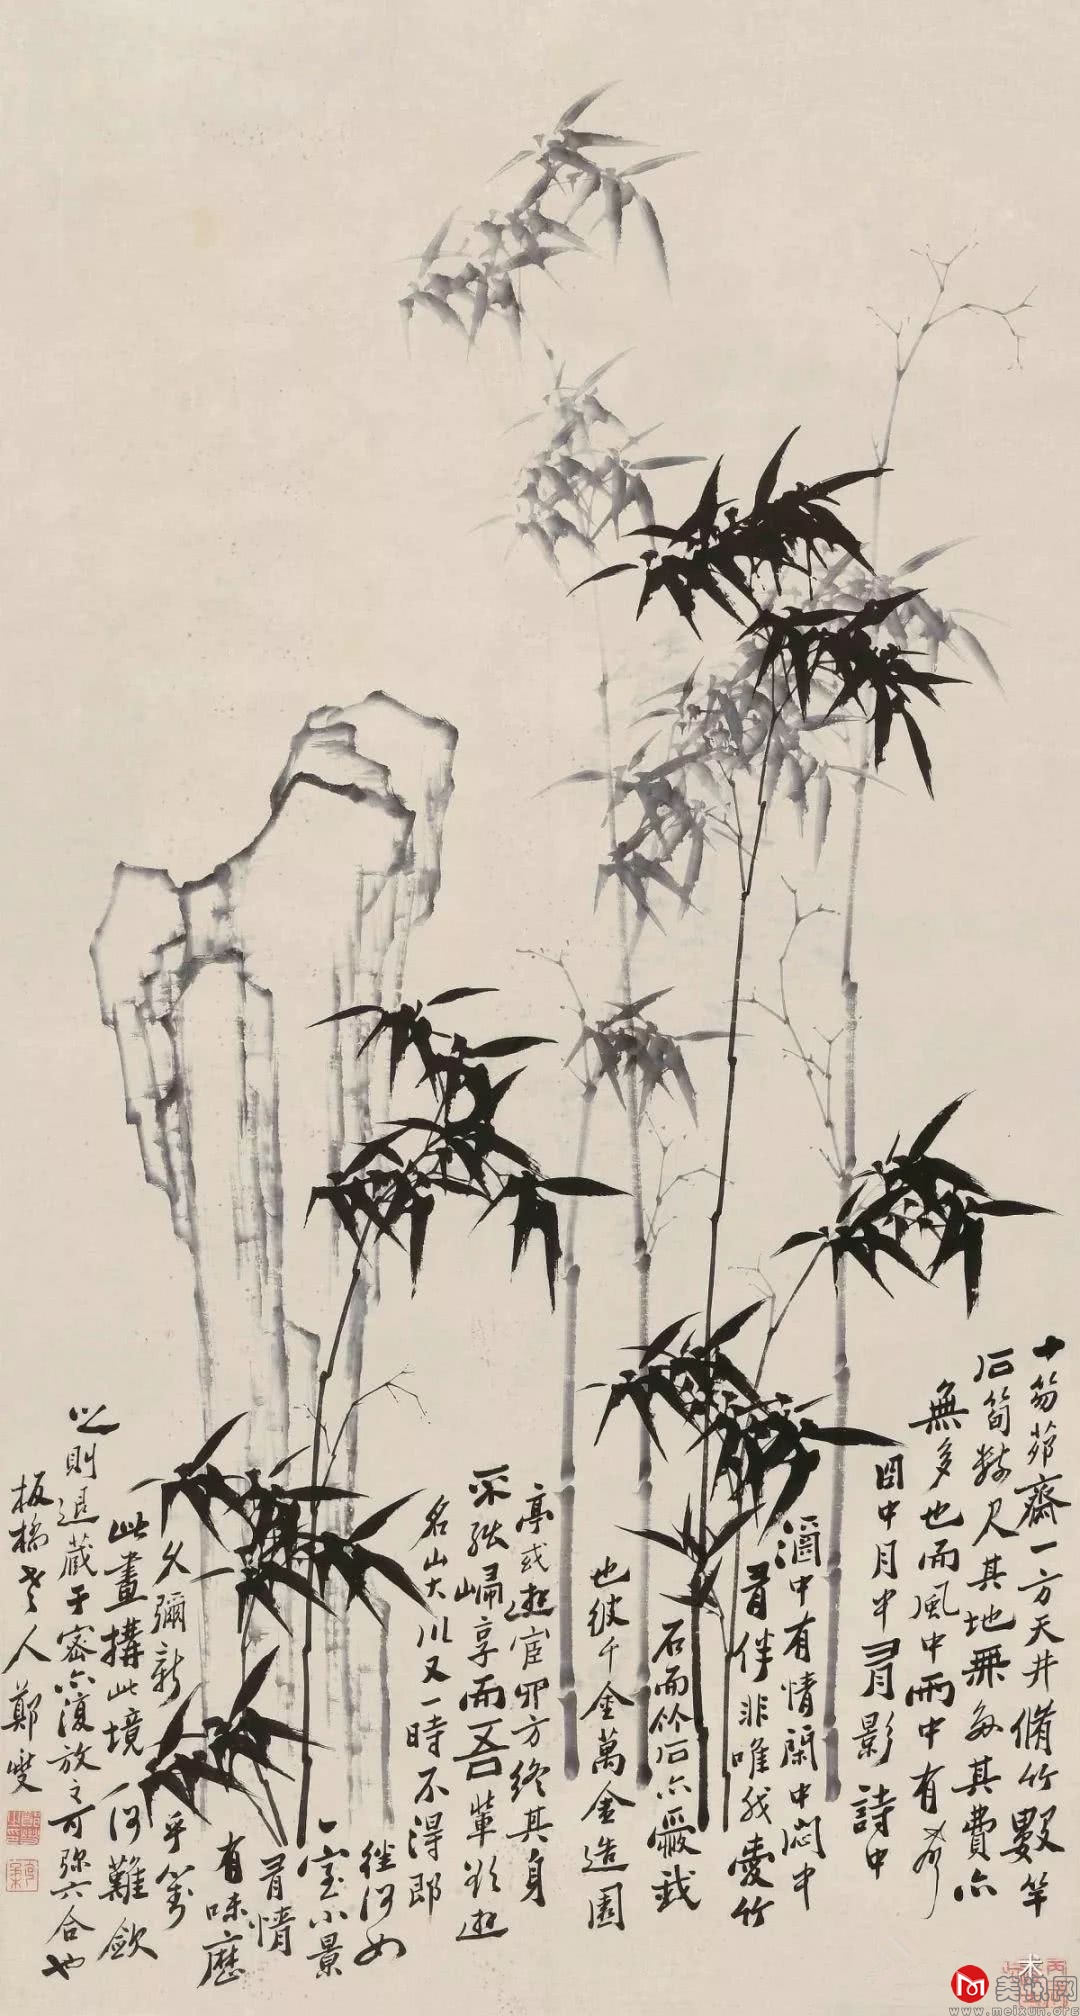 十笏茆齋一方天井脩竹數竿
石筍數尺其地無多其費亦
無多也而風中雨中有聲
日中月中有影詩中
酒中有情閒中悶中
有伴非唯我愛竹
石而竹石亦愛我
也彼千金萬金造園
亭或遊宦四方終其身
不能歸享而吾輩欲遊
名山大川又一時不得即
往何如
一室小景
有情
有味歷
久彌新乎對
此畫構此境何難斂
之則退藏于密亦復放之可弥六合也
板橋老人鄭燮
美讯网
www.meixun.org